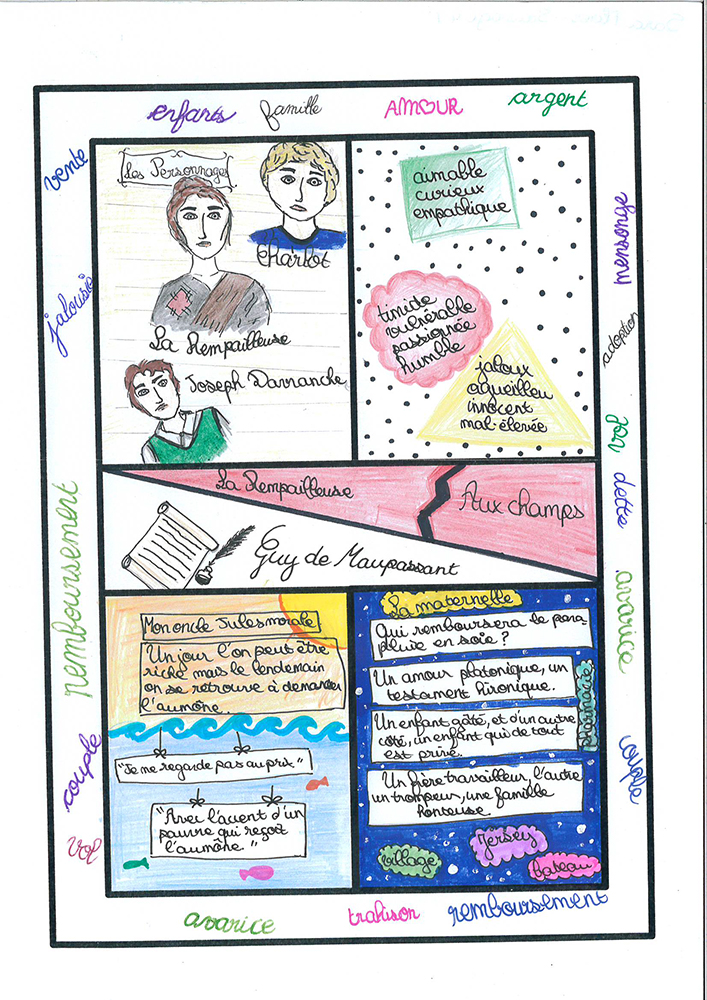 enfants famille AMOUR argent
vente
jalousie
remboursement
couple
vol
Les Personnages
Charlot
La Rempailleuse
Joseph Davranche
aimable
curieux
empathique
timide
vulnérable
passionnée
humble
jaloux
orgueilleu
innocent
mal-élevée
mensonge
adoption
vol
dette
avarice
couple
La Rempailleuse
Aux champs
Guy de Maupassant
Mon oncle Jules morale
Un jour l'on peut être
riche mais le lendemain
on se retrouve à demander
l'aumône.
"Je me regarde pas au prix"
"Avec l'accent d'un
pauvre qui reçoit
l'aumône"
La maternelle
Qui remboursera le para
pluie en soie ?
Un amour platonique, un
testament ironique.
Pharmacie
Un enfant gâté, et d'un autre
côté, un enfant qui de tout
est privé.
Un frère travailleur, l'autre
un trompeur, une famille
honteuse.
village
Jersey
bateau
avarice trahison remboursement